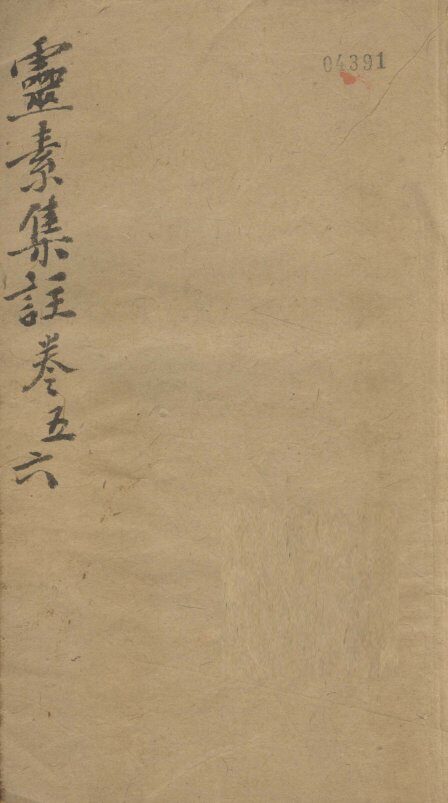 04391
靈素集註卷五六